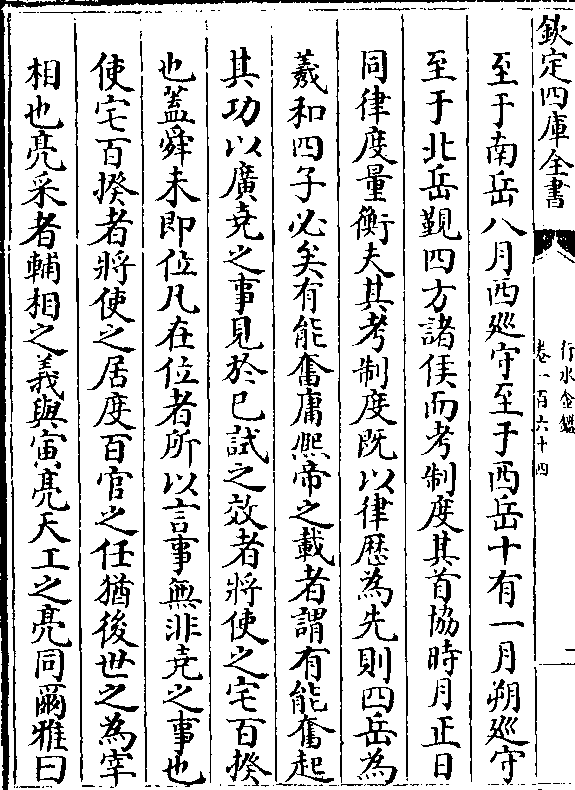 欽定四庫全書
行水金鑑
卷一百六十四
二
至于南岳八月西廵守至于西岳十有一月朔廵守
至于北岳覲四方諸侯而考制度其首協時月正日
同律度量衡夫其考制度既以律歴為先則四岳為
羲和四子必矣有能奮庸熈帝之載者謂有能奮起
其功以廣堯之事見於已試之效者將使之宅百揆
也蓋舜未即位凡在位者所以言事無非堯之事也
使宅百揆者將使之居度百官之任猶後世之為宰
相也亮采者輔相之義與寅亮天工之亮同爾雅曰